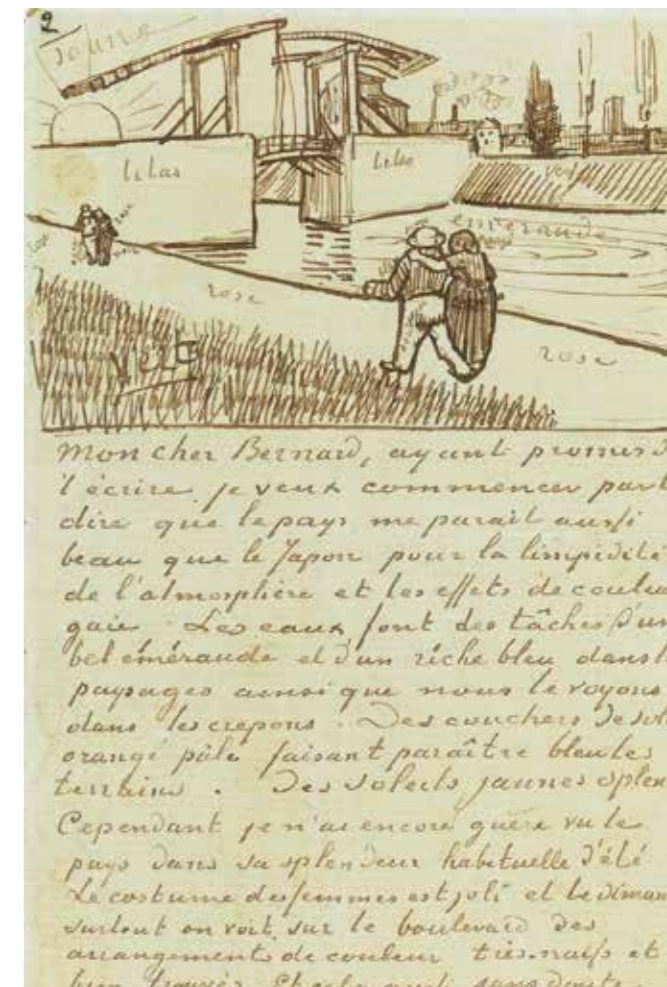 2
jaune
lilas
lilas
vert
emeraude
rose
rose
vert
mon cher Bernard, ayant promis d
t'écrire je veux commencer par t
dire que le pays me parait aussi
beau que le Japon pour la limpidité
de l'atmosphère et les effets de couleur
gaie. Les eaux font des tâches d'un
bel éméraude et d'un riche bleu dans l
paysages ainsi que nous le voyons
dans les crepons. Des couchers de sol
orangé pâle faisant paraître bleu les
terrains. Des soleils jaunes splen
Cependant je n'ai encore guère vu le
pays dans sa splendeur habituelle d'été
Le costume des femmes est joli et le diman
surtout on voit sur le boulevard des
arrangements de couleur très naifs et
bien trouvés. Et cela aussi sans doute